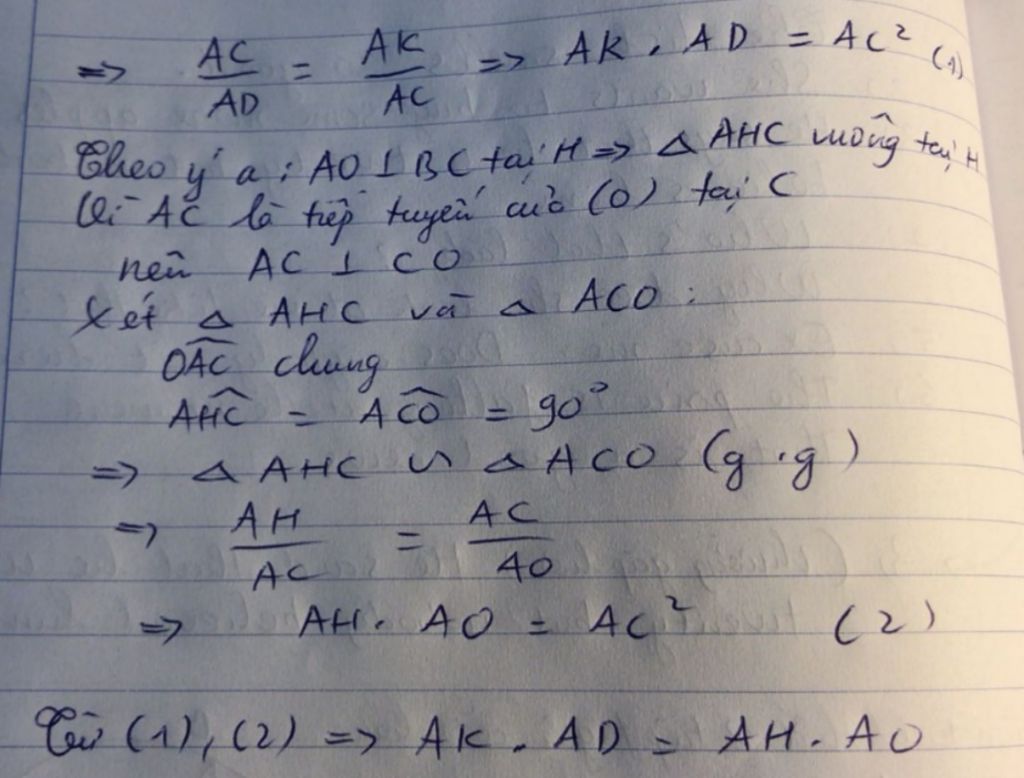 => AC/AD = AK/AC => AK . AD = AC² (1)
Theo ý a : AO ⊥ BC tại H => △ AHC vuông tại H
Vì AC là tiếp tuyến của (O) tại C
nên AC ⊥ CO
Xét △ AHC và △ ACO :
OÂC chung
AĤC = AĈO = 90°
=> △ AHC ∽ △ ACO (g.g)
=> AH/AC = AC/AO
=> AH. AO = AC² (2)
Từ (1), (2) => AK . AD = AH . AO